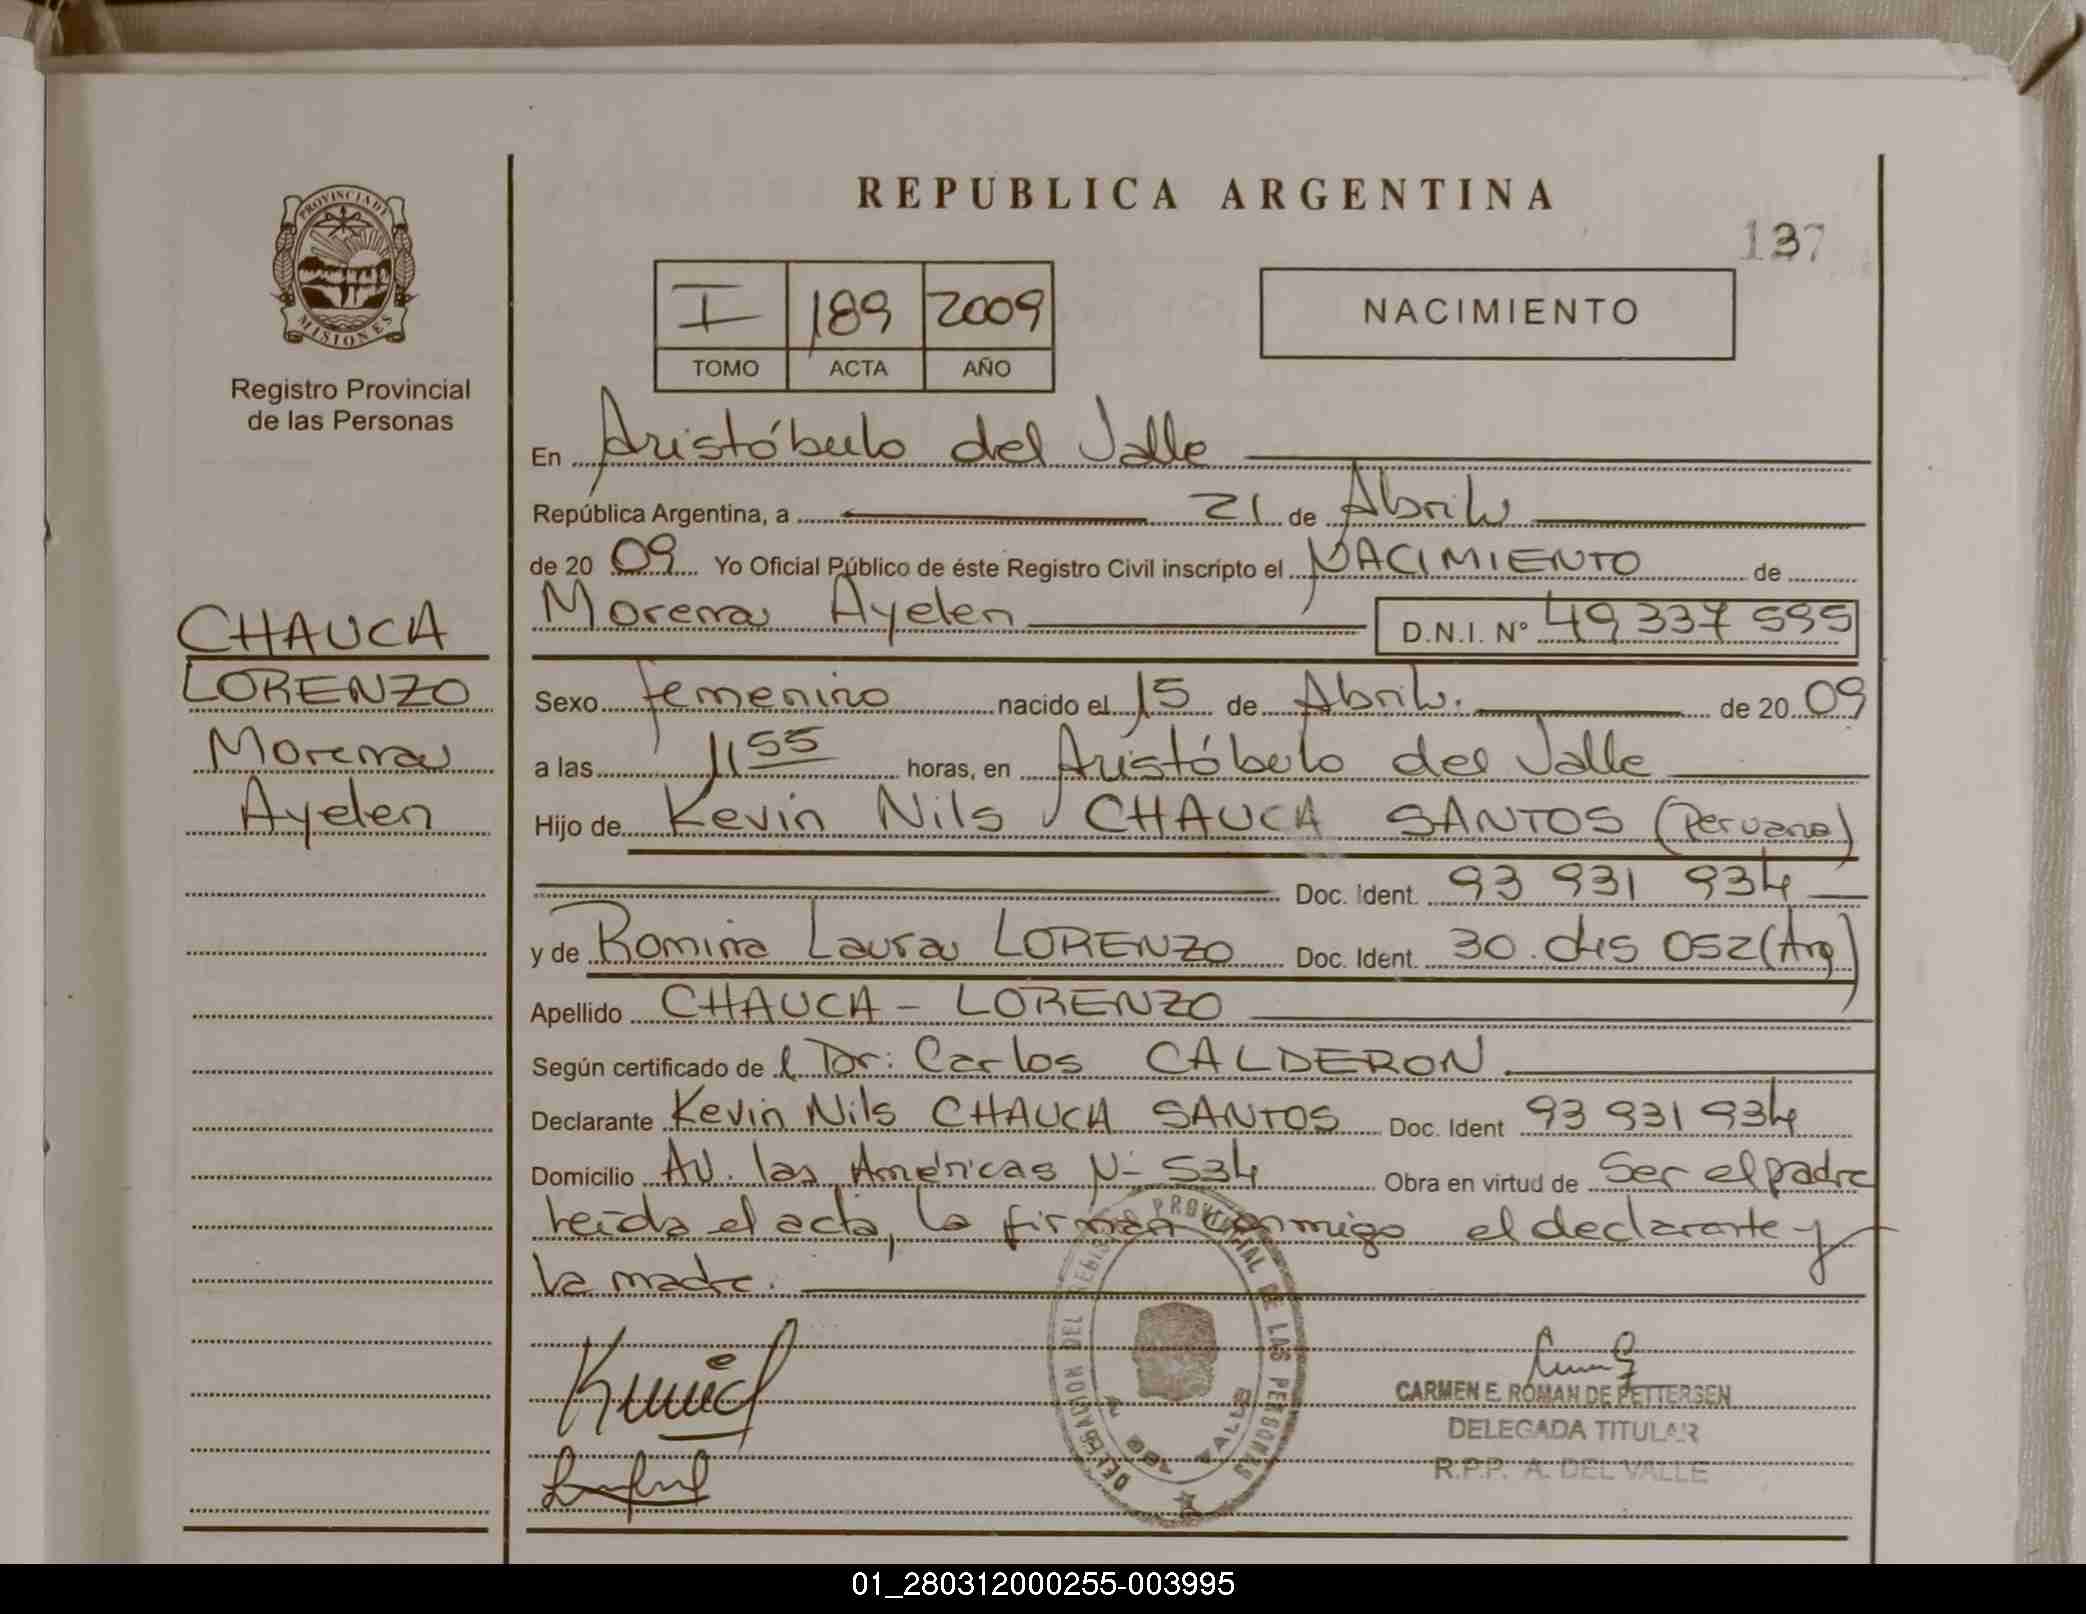 PROVINCIA DE
MISIONES
Registro Provincial
de las Personas
CHAUCA
LORENZO
Morena
Ayelen
REPUBLICA ARGENTINA
137
I 189 2009
TOMO ACTA AÑO
NACIMIENTO
En Aristóbulo del Valle
República Argentina, a 21 de Abril
de 20 09 Yo Oficial Público de éste Registro Civil inscripto el NACIMIENTO de
Morena Ayelen D.N.I. N° 49 337 595
Sexo femenino nacido el 15 de Abril. de 20 09
a las 11 55 horas, en Aristóbulo del Valle
Hijo de Kevin Nils CHAUCA SANTOS (Peruano)
Doc. Ident. 93 931 934
y de Romina Laura LORENZO Doc. Ident. 30. 052 (Arg)
Apellido CHAUCA - LORENZO
Según certificado de l Dr: Carlos CALDERON
Declarante Kevin Nils CHAUCA SANTOS Doc. Ident 93 931 934
Domicilio AV. las Américas N- 534 Obra en virtud de Ser el padre
leída el acta, la firman conmigo el declarante y
la madre.
DELEGACION DEL REGISTRO PROVINCIAL DE LAS PERSONAS
DEL VALLE
CARMEN E. ROMAN DE PETTERSEN
DELEGADA TITULAR
R.P.P. A. DEL VALLE
01_280312000255-003995